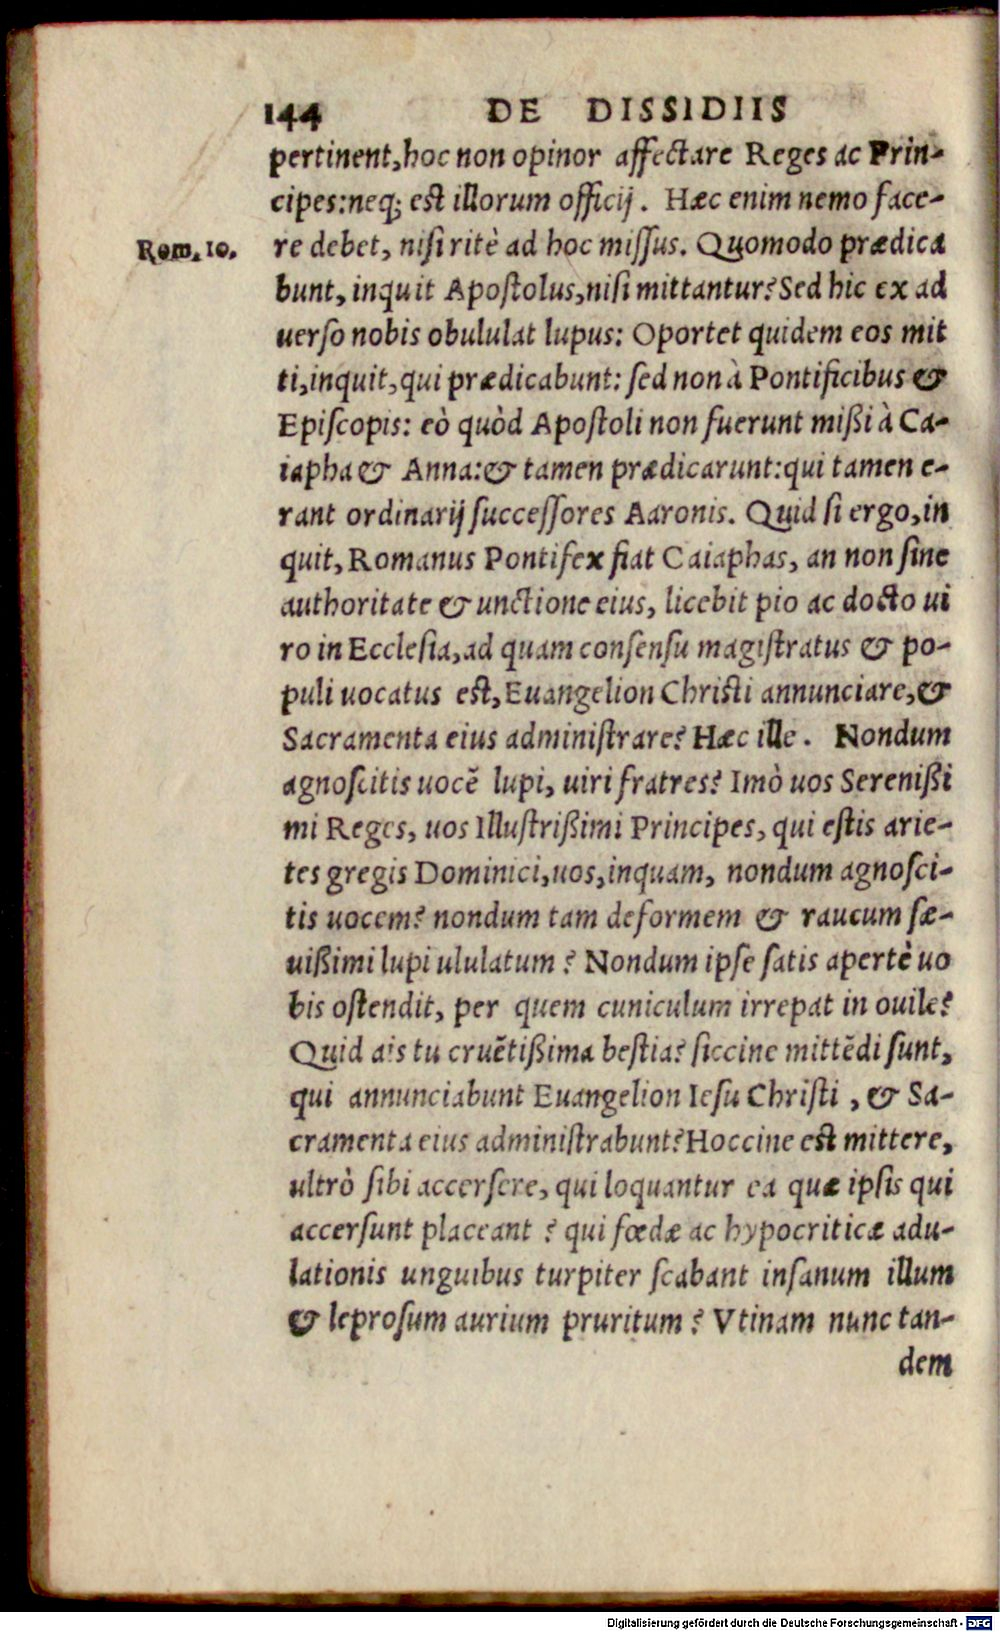 144 DE DISSIDIIS
pertinent, hoc non opinor affectare Reges ac Prin-
cipes: neq; est illorum officij. Hæc enim nemo face-
Rom. 10. re debet, nisi ritè ad hoc missus. Quomodo prædica
bunt, inquit Apostolus, nisi mittantur? Sed hic ex ad
uerso nobis obululat lupus: Oportet quidem eos mit
ti, inquit, qui prædicabunt: sed non à Pontificibus &
Episcopis: eò quòd Apostoli non fuerunt mißi à Ca-
iapha & Anna: & tamen prædicarunt: qui tamen e-
rant ordinarij successores Aaronis. Quid si ergo, in
quit, Romanus Pontifex fiat Caiaphas, an non sine
authoritate & unctione eius, licebit pio ac docto ui
ro in Ecclesia, ad quam consensu magistratus & po-
puli uocatus est, Euangelion Christi annunciare, &
Sacramenta eius administrare? Hæc ille. Nondum
agnoscitis uocẽ lupi, uiri fratres? Imò uos Serenißi
mi Reges, uos Illustrißimi Principes, qui estis arie-
tes gregis Dominici, uos, inquam, nondum agnosci-
tis uocem? nondum tam deformem & raucum sæ-
uißimi lupi ululatum? Nondum ipse satis apertè uo
bis ostendit, per quem cuniculum irrepat in ouile?
Quid ais tu cruẽtißima bestia? siccine mittẽdi sunt,
qui annunciabunt Euangelion Iesu Christi, & Sa-
cramenta eius administrabunt? Hoccine est mittere,
ultrò sibi accersere, qui loquantur ea quæ ipsis qui
accersunt placeant? qui fœdæ ac hypocriticæ adu-
lationis unguibus turpiter scabant insanum illum
& leprosum aurium pruritum? Vtinam nunc tan-
dem
Digitalisierung gefördert durch die Deutsche Forschungsgemeinschaft - DFG